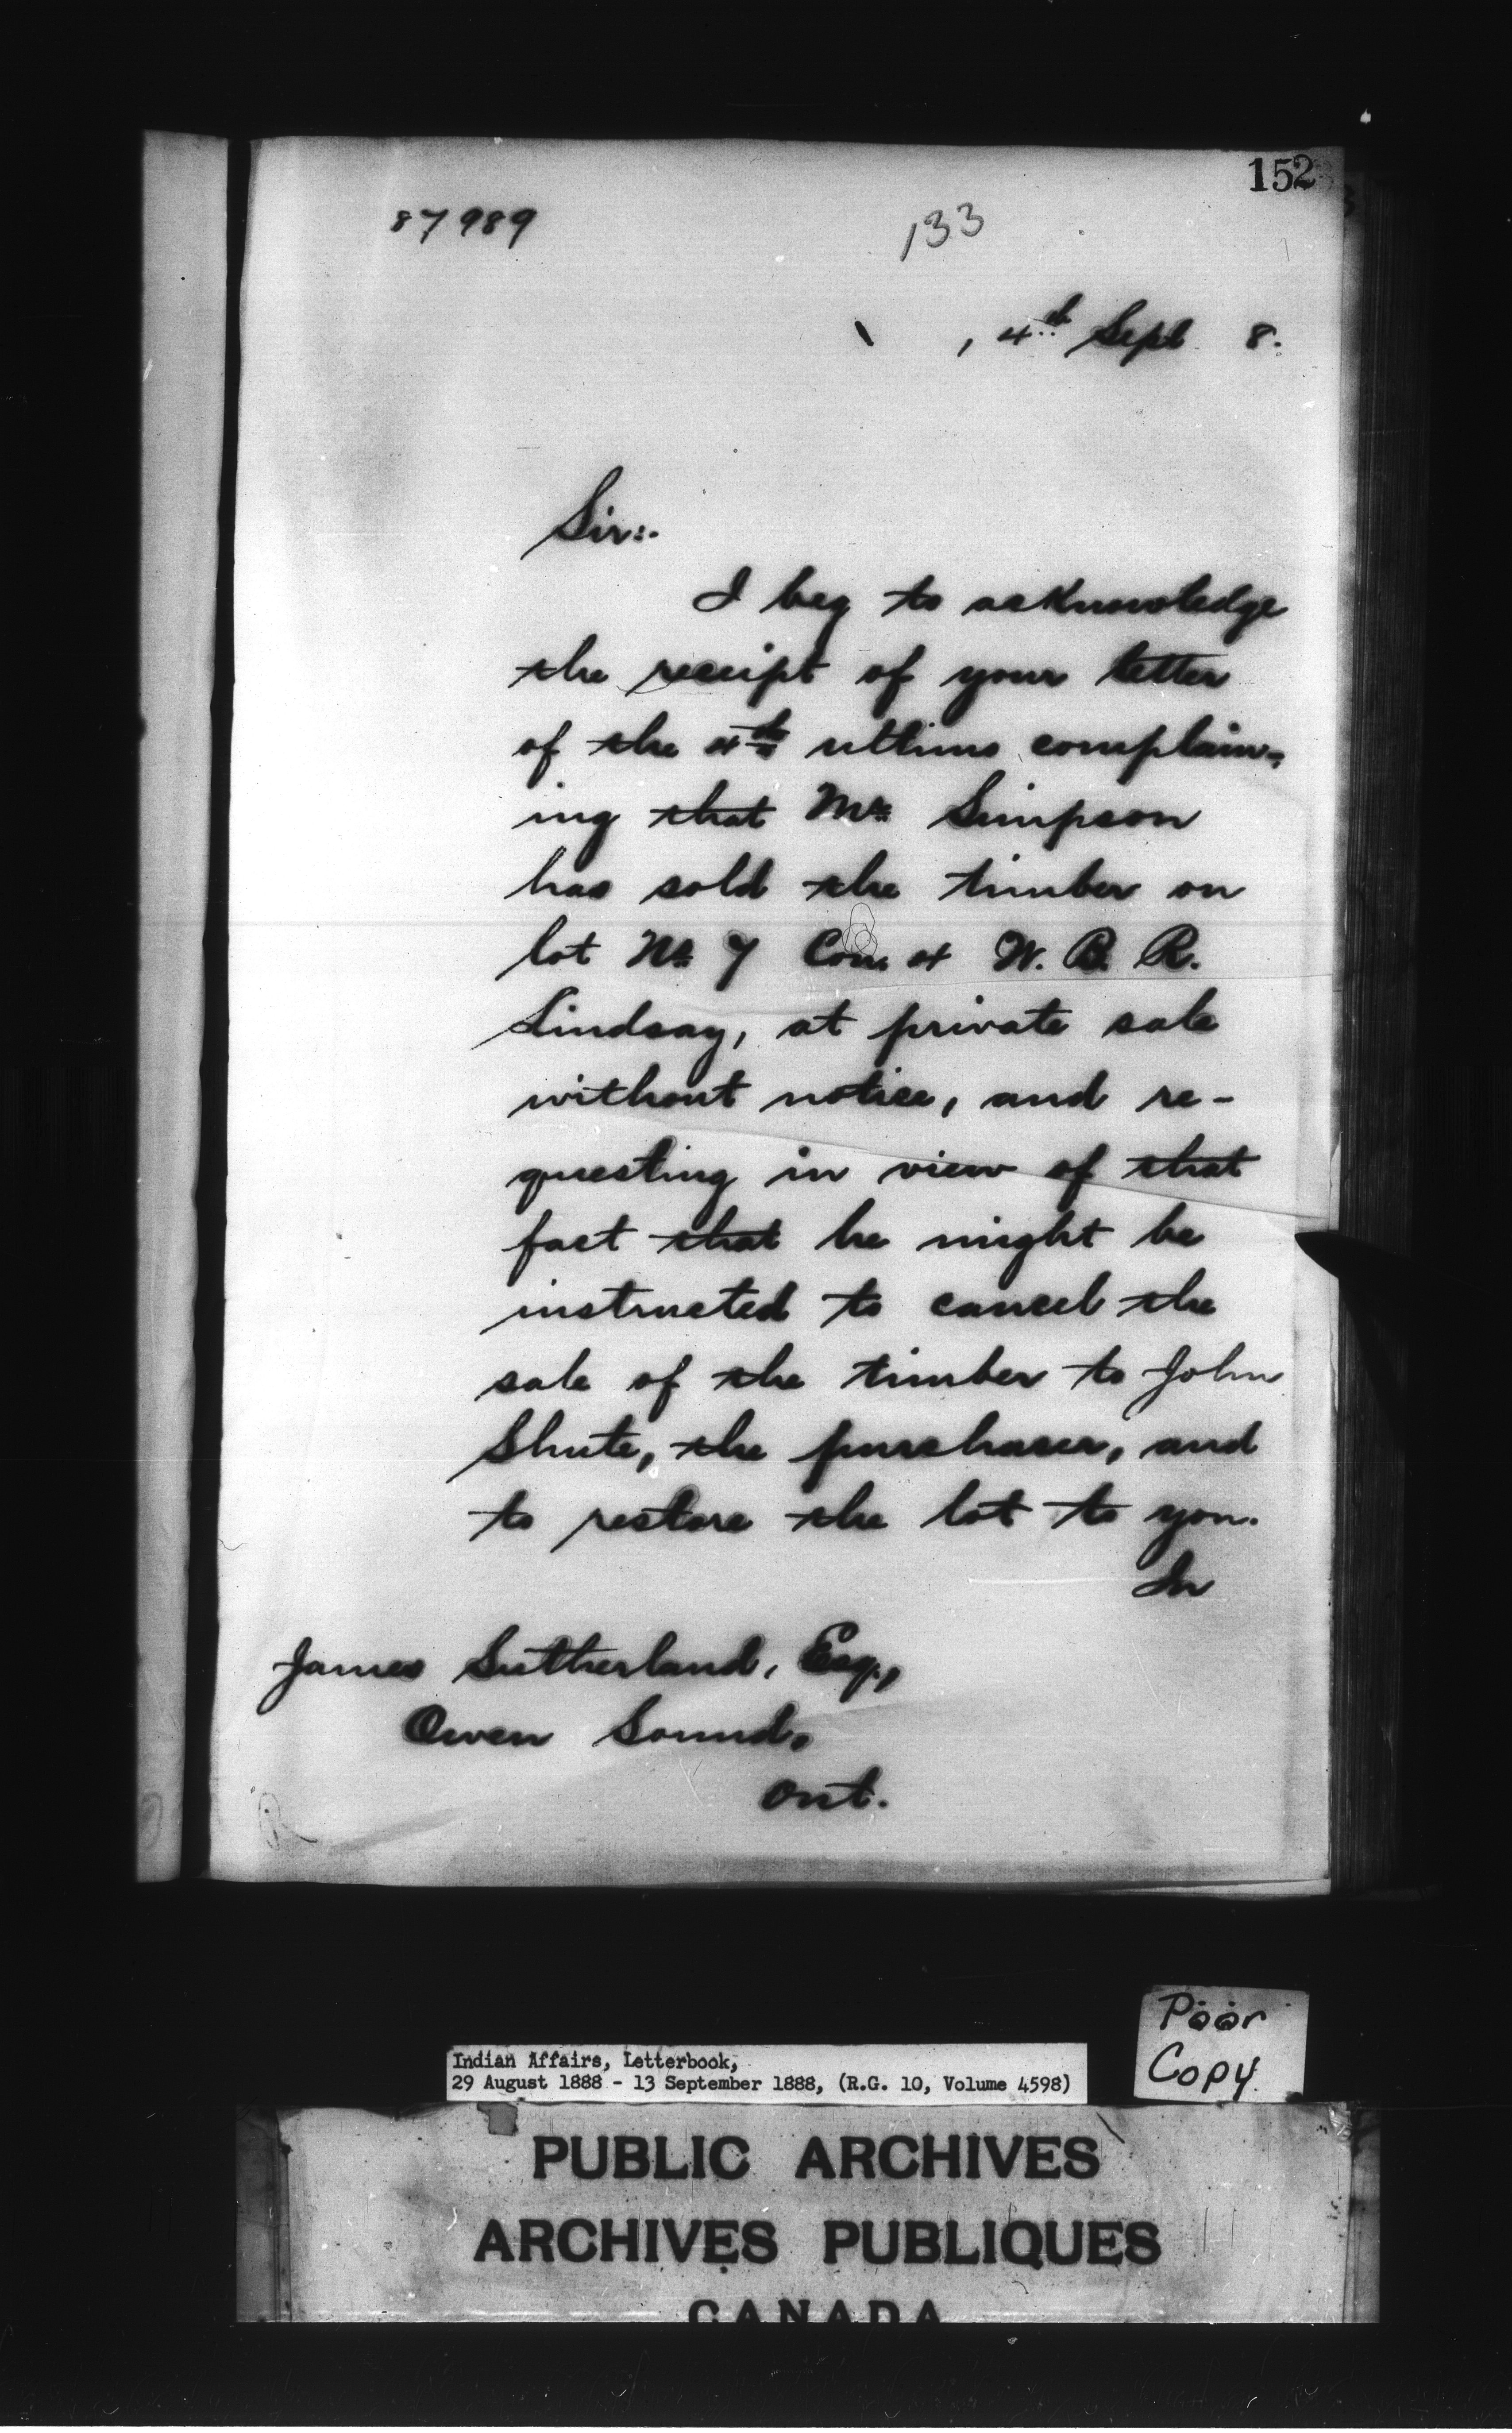 152
87989
133
, 4th Sept 8.
Sir:.
I beg to acknowledge
the receipt of your letter
of the 4th ultimo complain-
ing that Mr Simpson
has sold the timber on
lot No 7 Con 4 W. B. R.
Lindsay, at private sale
without notice, and re-
questing in view of that
fact that he might be
instructed to cancel the
sale of the timber to John
Shute, the purchaser, and
to restore the lot to you.
In
James Sutherland, Esq.,
Owen Sound,
Ont.
Poor
Copy
Indian Affairs, Letterbook,
29 August 1888 - 13 September 1888, (R.G. 10, Volume 4598)
PUBLIC ARCHIVES
ARCHIVES PUBLIQUES
CANADA